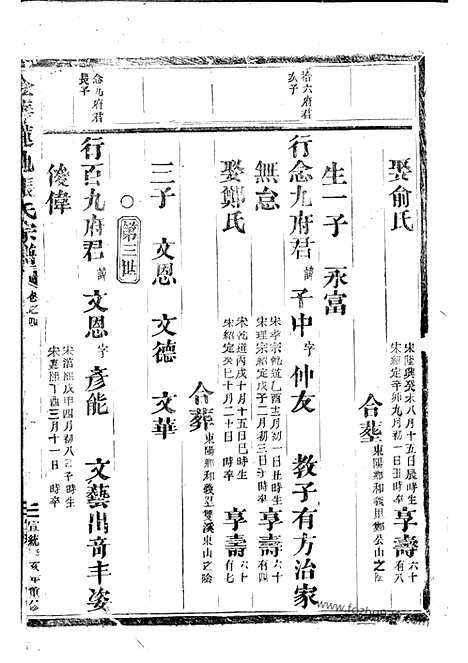 娶俞氏
宋隆興癸未八月十五日辰時生
宋紹定辛卯九月初一日丑時卒
享壽
六十
有八
合葬
東陽鄉和義里鄭公山之陰
生一子 永富
拾六府君
次子
行念九府君
諱
子中
字
仲友 教子有方治家
無怠
宋孝宗乾道乙酉三月初一日丑時生
宋理宗紹定戊子二月初三日
時卒
享壽
六十
有四
娶鄭氏
宋乾道丙戌十月十五日巳時生
宋紹定癸巳十月二十日 時卒
享壽
六十
有七
合葬
東陽鄉和義里雙溪東山之陰
三子 文恩 文德 文華
第三世
念九府君
長子
行百九府君
諱
文恩
字
彥能 文藝出奇丰姿
俊偉
宋淳熙戊申四月初八日子時生
宋嘉熙丁酉三月十一日 時卒
蓮池張氏宗譜
卷之四
宣統